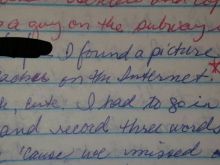 a guy on the subway
I found a picture
on the Internet. *
cute. I had to go in
and record three words
'Cause we missed